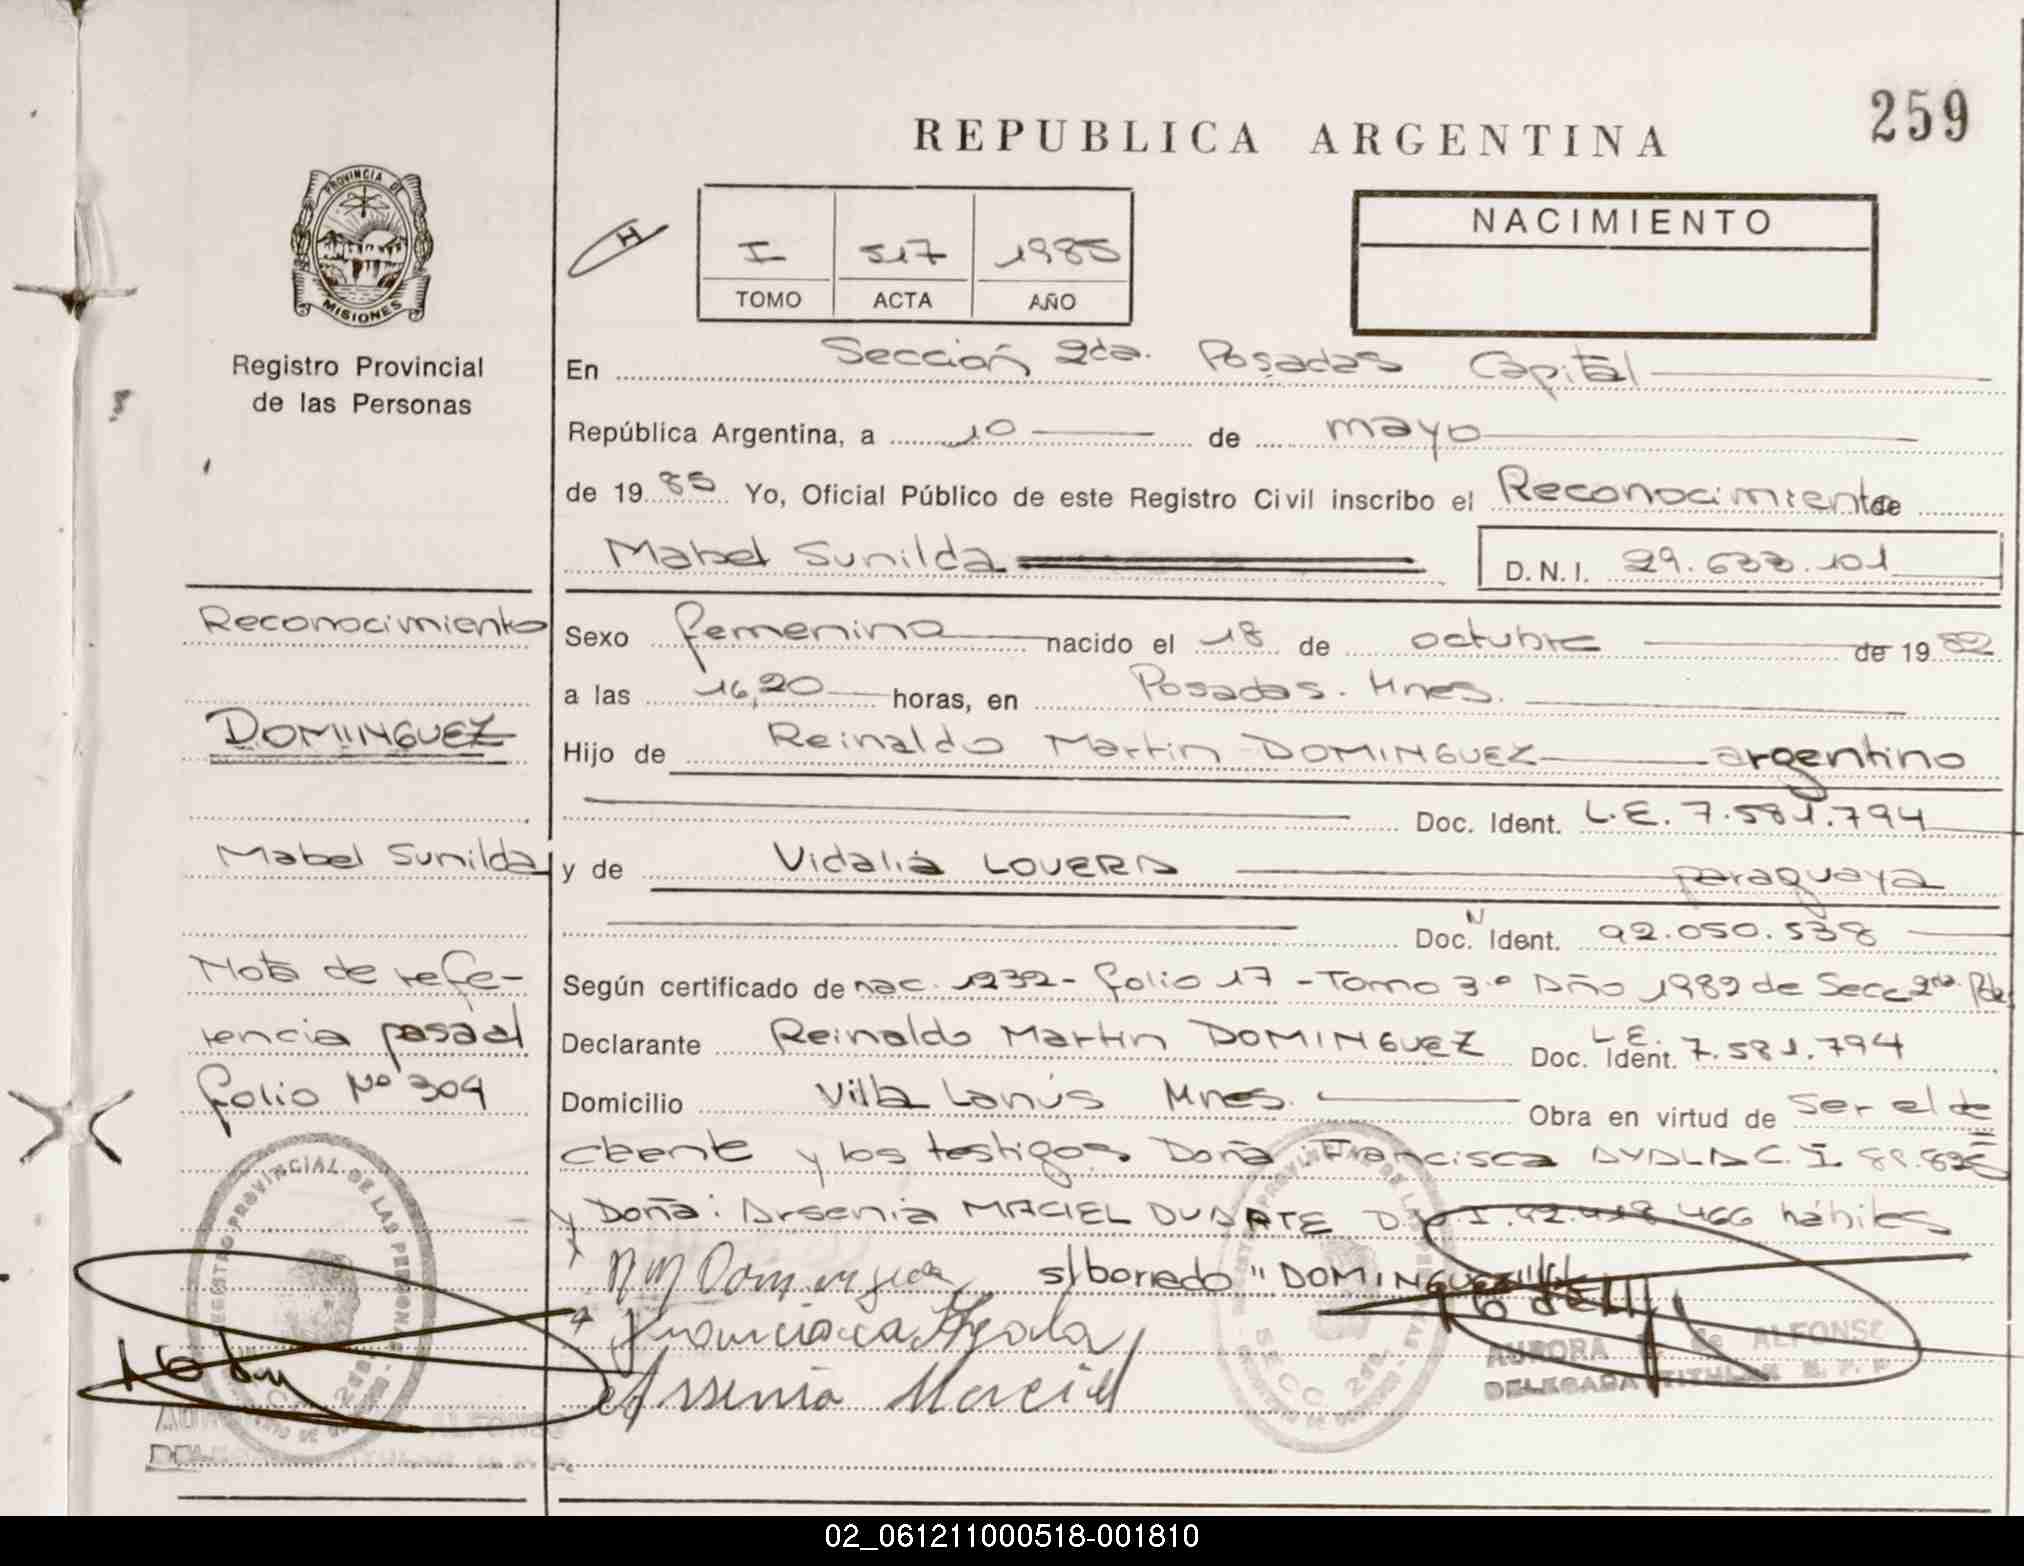 259
REPUBLICA ARGENTINA
PROVINCIA DE
MISIONES
Registro Provincial
de las Personas
H
I 517 1985
TOMO ACTA AÑO
NACIMIENTO
En Sección 2da. Posadas Capital
República Argentina, a 10 de mayo
de 1985 Yo, Oficial Público de este Registro Civil inscribo el Reconocimiento de
Mabel Sunilda D.N.I. 29.633.101
Sexo femenino nacido el 18 de octubre de 1982
a las 16,20 horas, en Posadas. Mnes.
Hijo de Reinaldo Martin DOMINGUEZ argentino
Doc. Ident. L.E. 7.581.794
y de Vidalia LOVERA paraguaya
Doc. Ident. Nº 92.050.538
Según certificado de nac. 1232 - folio 17 - Tomo 3.º Año 1982 de Secc 2da.
Declarante Reinaldo Martin DOMINGUEZ Doc. Ident. L.E. 7.581.794
Domicilio Villa Lanús Mnes. Obra en virtud de ser el de
clarante y los testigos Doña: Francisca AYALA C.I.
y Doña: Arsenia MACIEL DUARTE D.N.I. 92.418.466 hábiles
s/borrado "DOMINGUEZ"
Francisca Ayala
Arsenia Maciel
AURORA DE ALFONSO
DELEGADA TITULAR R.P.P.
Reconocimiento
DOMINGUEZ
Mabel Sunilda
Nota de refe-
rencia pasa al
folio Nº 304
REGISTRO PROVINCIAL DE LAS PERSONAS
02_061211000518-001810